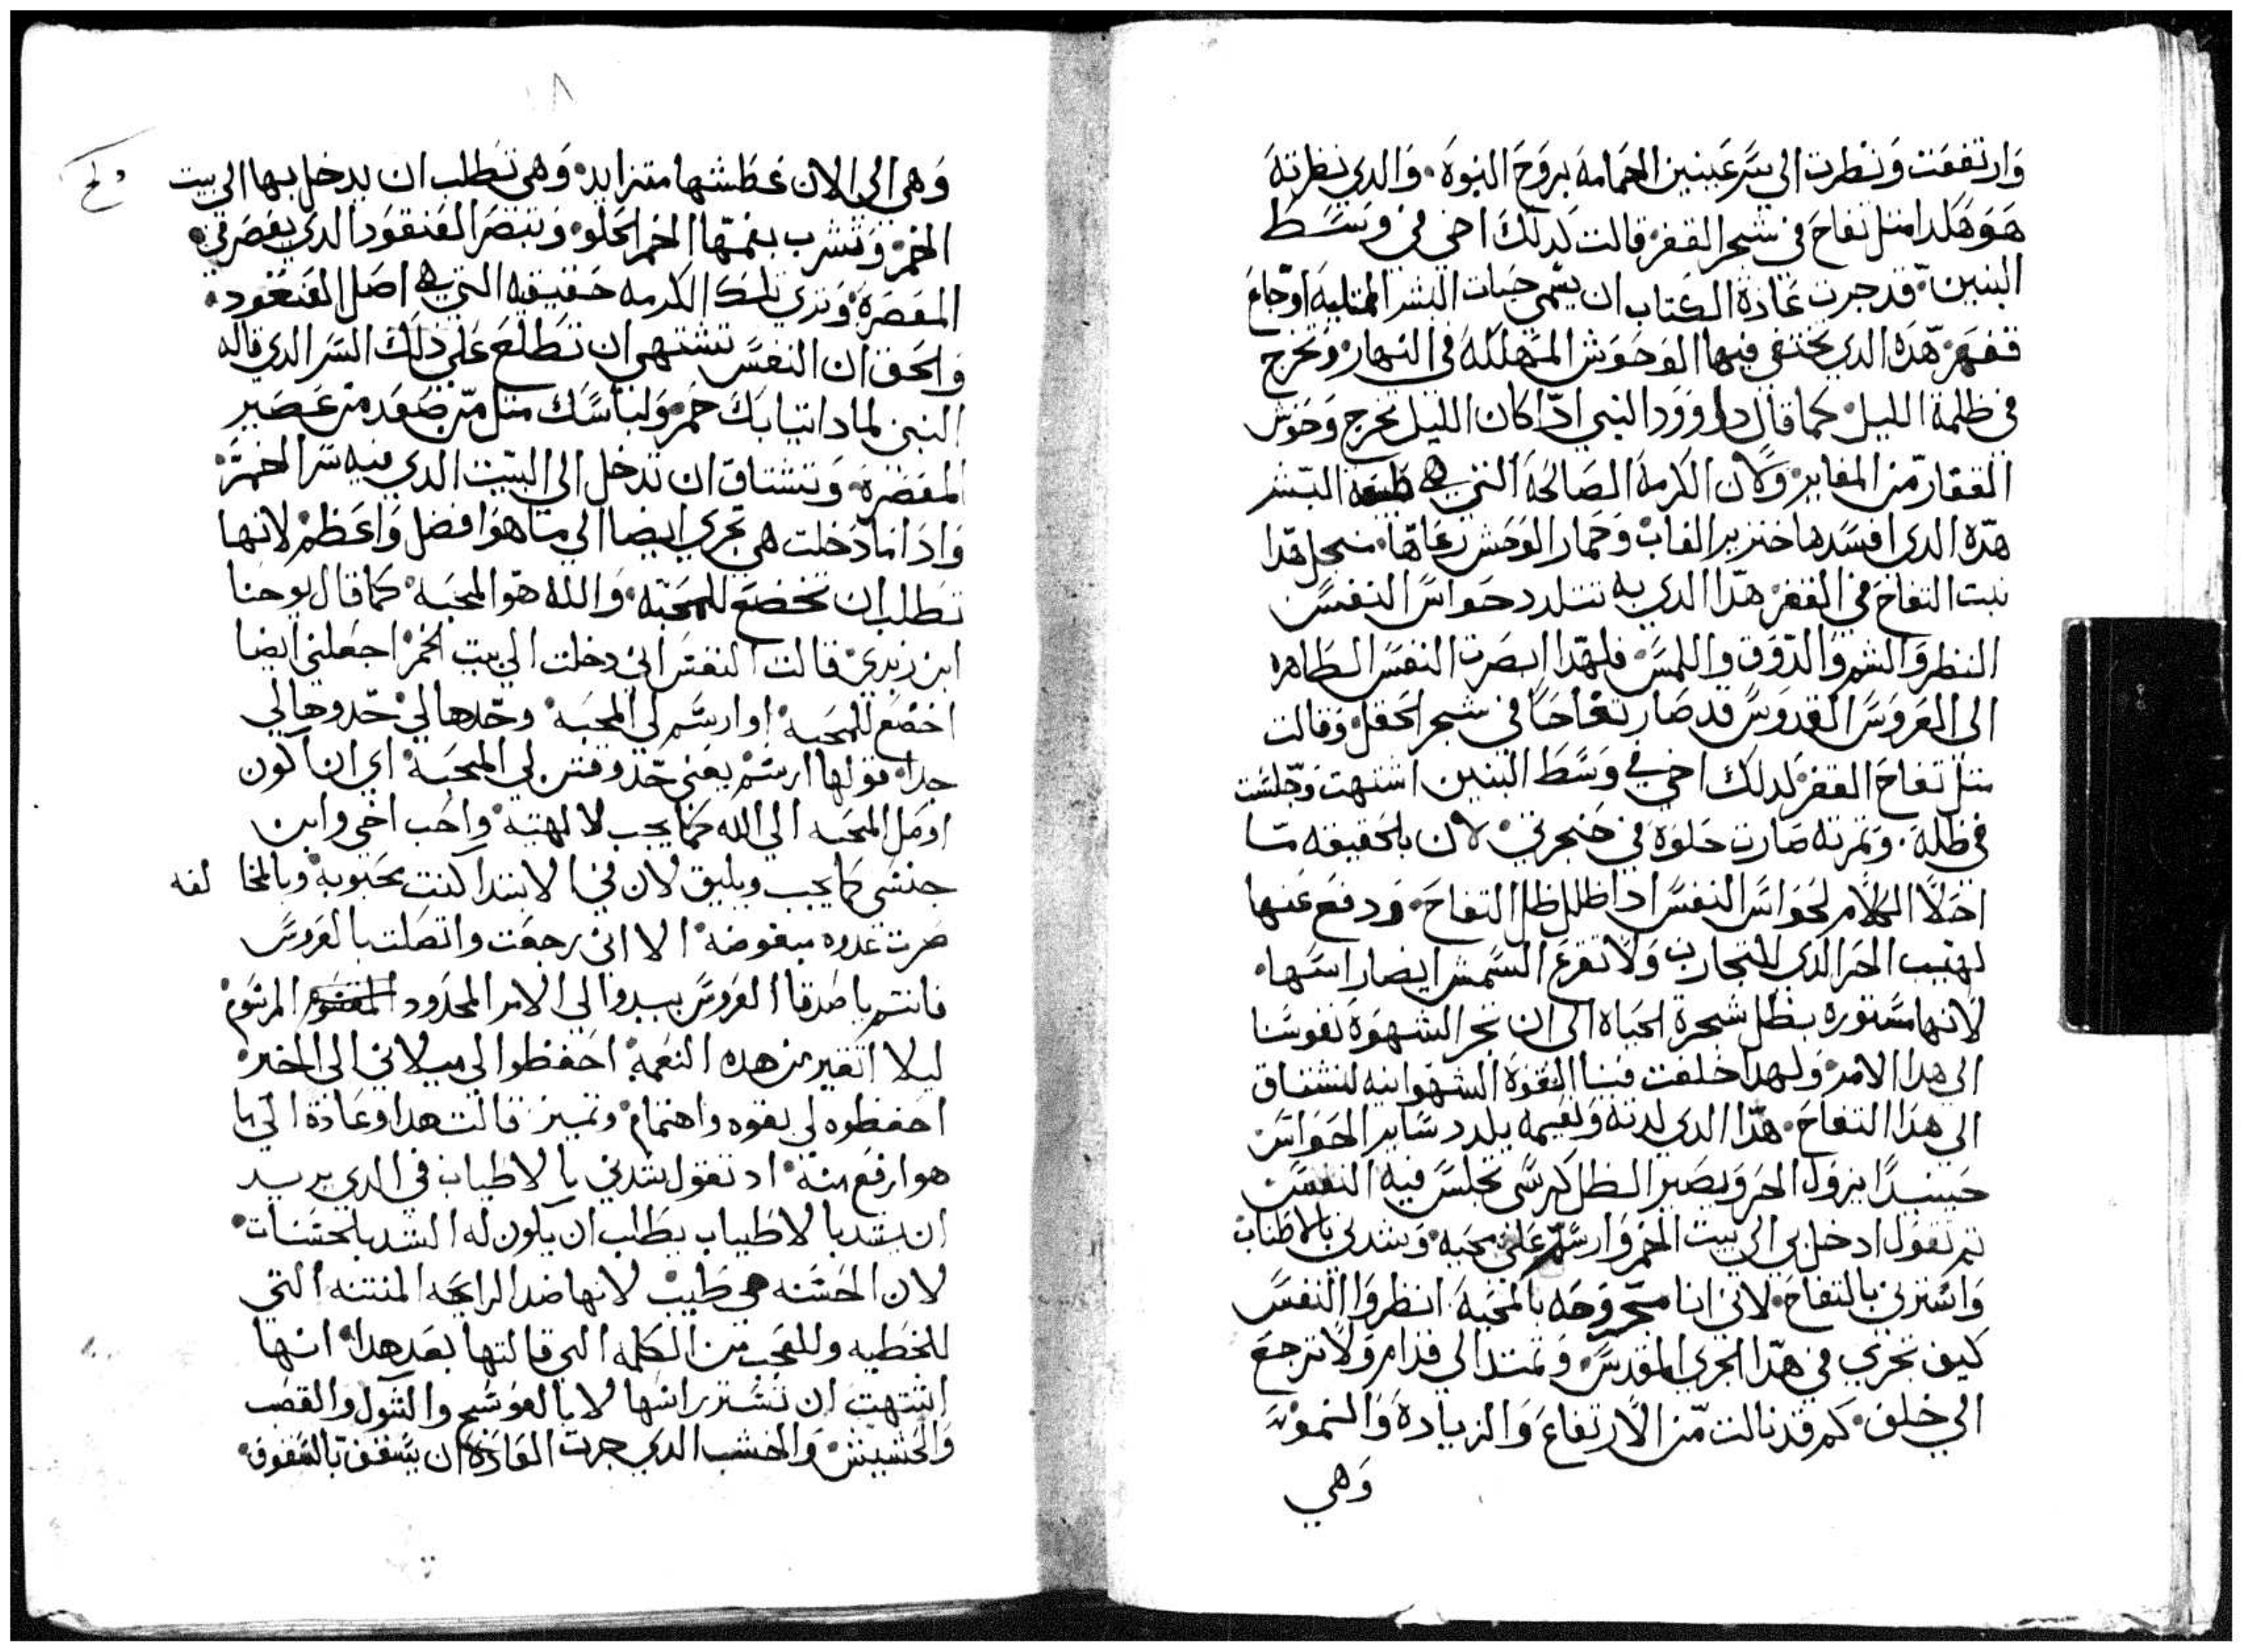 وارتفعت ونظرت الي سر عينين الحمامة بروح النبوه. والدي نظرته
هو هكدا مثل تفاح في شجر القفر. قالت كدلك اخي في وسط
البنين. قد جرت عادة الكتاب ان يسمي حيات البشر الممتليه اوجاع
قفر. هده الدي تختفي فيها الوحوش المهلكه في النهار. وتخرج
في ظلمة الليل. كما قال داوود النبي ادا كان الليل تخرج وحوش
القفار من المغاير. ولان الكرمة الصالحه التي هي طبيعة البشر
هده الدي افسدها خنزير الغاب وحمار الوحش رعاها. من اجل هدا
نبت التفاح في القفر. هدا الدي به تتلدد حواس النفس
النظر والشم والدوق واللمس. فلهدا ابصرت النفس الطاهره
الي العروس القدوس قد صار تفاحا في شجر الحقل. وقالت
مثل تفاح القفر كدلك اخي في وسط البنين اشتهت وجلست
في ظله. وتمرته صارت حلوة في حنجرتي. لان بالحقيقه ما
احلا الكلام لحواس النفس ادا ظلل ظل التفاح. ودفع عنها
لهيب الحر الدي للتجارب ولا تقرع الشمش ايضا راسها.
لانها مستوره بظل شجرة الحياه الي ان تجر الشهوة نفوسنا
الي هدا الامر. ولهدا خلقت فينا القوة الشهوانيه لنشتاق
الي هدا التفاح. هدا الدي لدته ونعيمه يلدد ساير الحواس
حينيدا يزول الحر ويصير الظل كرسي تجلس فيه النفس
تم تقول ادخل بي الي بيت الخمر وارسم علي محبه. وشدني بالاطياب
واسترني بالتفاح. لاني انا مجروحه بالمحبه. انظروا النفس
كيف تجري في هدا الجري المقدس. وتمتد الي قدام ولا ترجع
الي خلف. كم قد نالت من الارتفاع والزيادة والنمو
وهي
وهي الي الان عطشها متزايد. وهي تطلب ان يدخل بها الي بيت
الخمر. وتشرب بفمها الخمر الحلو. وتبصر العنقود الدي يعصر في
المعصرة. وتري تلك الكرمه حقيقيه التي هي اصل العنقود.
والحق ان النفس تشتهي ان تطلع علي دلك السر الدي قاله
النبي لمادا تيابك حمر. ولباسك مثل من صعد من عصير
المعصرة. وتشتاق ان تدخل الي البيت الدي فيه سر الخمر.
وادا ما دخلت هي تجري ايضا الي ما هو افضل واعظم. لانها
تطلب ان تخضع للمحبه. والله هو المحبه. كما قال يوحنا
ابن زبدي. قالت النفس اني دخلت الي بيت الخمر. اجعلني ايضا
اخضع للمحبه. او ارسم لي المحبه. وحدها لي. حدوها لي
جدا. قولها ارسم يعني حد وقنن لي المحبه. اي ان اكون
اوصل المحبه الي الله كما يجب لالهيته. واحب اخي وابن
جنسي كما يجب ويليق لان في الابتدا كنت محبوبه. وبالمخا لفه
صرت عدوه مبغوضه. الا اني رجعت واتصلت بالعروس
فانتم يا صدقا العروس لي الامر المحدود المرسوم
ليلا اتغير من هده النعمه. احفظوا لي ميلاني الي الخير
احفظوه لي بقوه واهتمام. وتمييز قالت هدا وعادة الي ما
هو ارفع منه. اد تقول شدني بالاطياب في الدي يريد
ان يشد بالاطياب يطلب ان يكون له الشد بالحسنات.
لان الحسنه هي طيب لانها ضد الرايحه المنتنه التي
للخطيه وللعجب من الكلمه التي قالتها بعد هدا. انها
اشتهت ان تستر راسها لا بالعوسج والشوك والقصب
والحشيش. والخشب الدي جرت العادة ان يسقف بالسقوف.